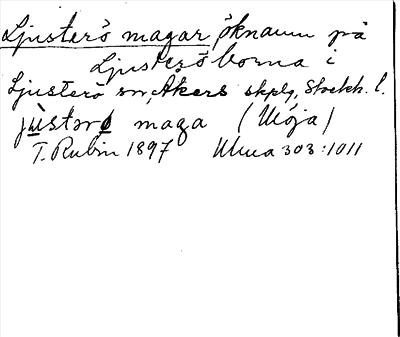 Ljusterö magar, öknamn på
Ljusteröborna i
Ljusterö sn, Åkers skplg, Stockh. l.
jùstǝrø maga (Möja)
T. Rubin 1897 Ulma 303:1011